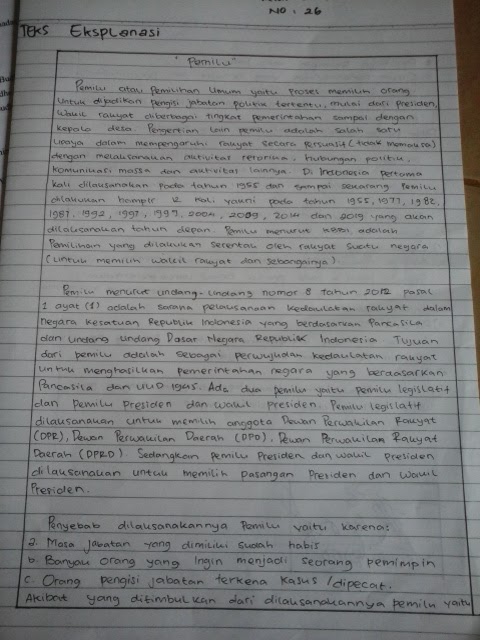 NO. 26
TEKS Eksplanasi
"Pemilu"
Pemilu atau Pemilihan Umum yaitu proses memilih orang
untuk dijadikan pengisi jabatan politik tertentu, mulai dari presiden,
wakil rakyat diberbagai tingkat pemerintahan sampai dengan
kepala desa. Pengertian lain pemilu adalah salah satu
upaya dalam mempengaruhi rakyat secara persuasif (tidak memaksa)
dengan melaksanakan aktivitas retorika, hubungan politik,
komunikasi massa dan aktivitas lainnya. Di Indonesia pertama
kali dilaksanakan pada tahun 1955 dan sampai sekarang Pemilu
dilakukan hampir 12 kali yakni pada tahun 1955, 1977, 1982,
1987, 1992, 1997, 1999, 2004, 2009, 2014 dan 2019 yang akan
dilaksanakan tahun depan. Pemilu menurut KBBI adalah
Pemilihan yang dilakukan serentak oleh rakyat suatu negara
(untuk memilih wakil rakyat dan sebagainya).
Pemilu menurut undang-undang nomor 8 tahun 2012 pasal
1 ayat (1) adalah sarana pelaksanaan kedaulatan rakyat dalam
Negara Kesatuan Republik Indonesia yang berdasarkan Pancasila
dan Undang Undang Dasar Negara Republik Indonesia Tujuan
dari pemilu adalah sebagai perwujudan kedaulatan rakyat
untuk menghasilkan pemerintahan negara yang berdasarkan
Pancasila dan UUD 1945. Ada dua pemilu yaitu pemilu legislatif
dan Pemilu Presiden dan wakil presiden. Pemilu legislatif
dilaksanakan untuk memilih anggota Dewan Perwakilan Rakyat
(DPR), Dewan Perwakilan Daerah (DPD), Dewan Perwakilan Rakyat
Daerah (DPRD). Sedangkan pemilu Presiden dan wakil Presiden
dilaksanakan untuk memilih pasangan Presiden dan Wakil
Presiden.
Penyebab dilaksanakannya Pemilu yaitu karena:
a. Masa jabatan yang dimiliki sudah habis
b. Banyak orang yang ingin menjadi seorang pemimpin
c. Orang pengisi jabatan terkena kasus / dipecat.
Akibat yang ditimbulkan dari dilaksanakannya pemilu yaitu